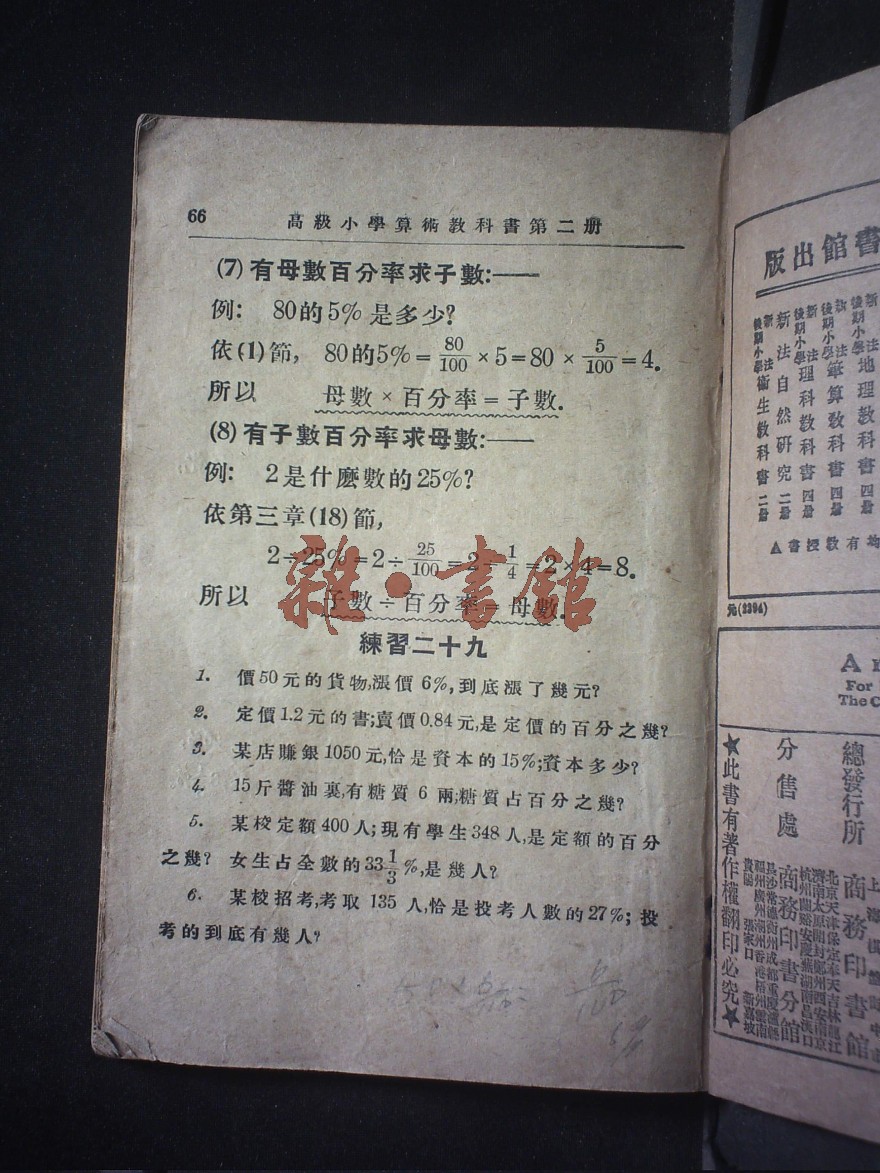 66 高級小學算術教科書第二册
(7) 有母數百分率求子數:——
例: 80的5% 是多少?
依(1)節, 80的5% = 80/100 × 5 = 80 × 5/100 = 4.
所以 母數 × 百分率 = 子數.
(8) 有子數百分率求母數:——
例: 2是什麽數的25%?
依第三章(18)節,
2÷25% = 2÷ 25/100 = 2÷ 1/4 = 2×4=8.
所以 子數 ÷ 百分率 = 母數.
雜·書館
練習二十九
1. 價50元的貨物,漲價6%,到底漲了幾元?
2. 定價1.2元的書;賣價0.84元,是定價的百分之幾?
3. 某店賺銀1050元,恰是資本的15%;資本多少?
4. 15斤醬油裏,有糖質6兩;糖質占百分之幾?
5. 某校定額400人;現有學生348人,是定額的百分
之幾? 女生占全數的33 1/3 %,是幾人?
6. 某校招考,考取135人,恰是投考人數的27%; 投
考的到底有幾人?
書館出版
新法 後期小學 地理教科書 四册
新法 後期小學 筆算教科書 四册
新法 後期小學 理科教科書 四册
新法自然研究 二册
新法 後期小學 衛生教科書 二册
▲書授教有均
元(2394)
For
The C
總發行所
商務印書館
分售處
商務印書分館
★此書有著作權翻印必究★